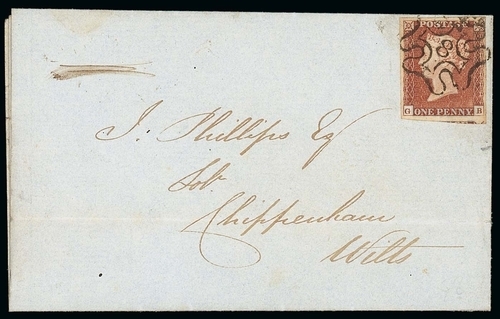 POSTAGE
8
G B
ONE PENNY
J. Phillips Esq
Solr
Chippenham
Wilts